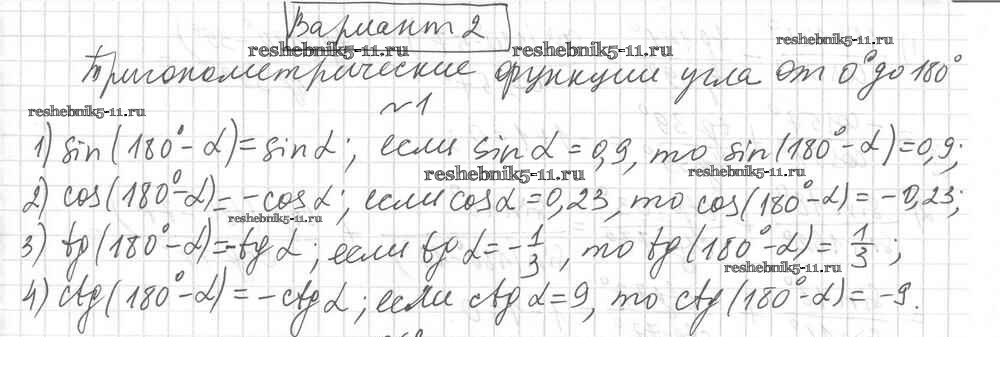 Вариант 2
reshebnik5-11.ru reshebnik5-11.ru reshebnik5-11.ru
Тригонометрические функции угла от 0° до 180°
reshebnik5-11.ru
№1
1) sin(180°-α)=sinα; если sinα=0,9, то sin(180°-α)=0,9;
reshebnik5-11.ru reshebnik5-11.ru
2) cos(180°-α)=-cosα; если cosα=0,23, то cos(180°-α)=-0,23;
reshebnik5-11.ru
3) tg(180°-α)=-tgα; если tgα=-1/3, то tg(180°-α)=1/3;
reshebnik5-11.ru
4) ctg(180°-α)=-ctgα; если ctgα=9, то ctg(180°-α)=-9.